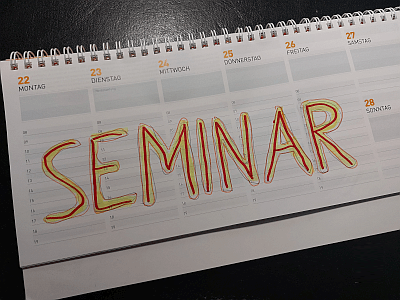 22 MONTAG
23 DIENSTAG
24 MITTWOCH
25 DONNERSTAG
26 FREITAG
27 SAMSTAG
28 SONNTAG
SEMINAR